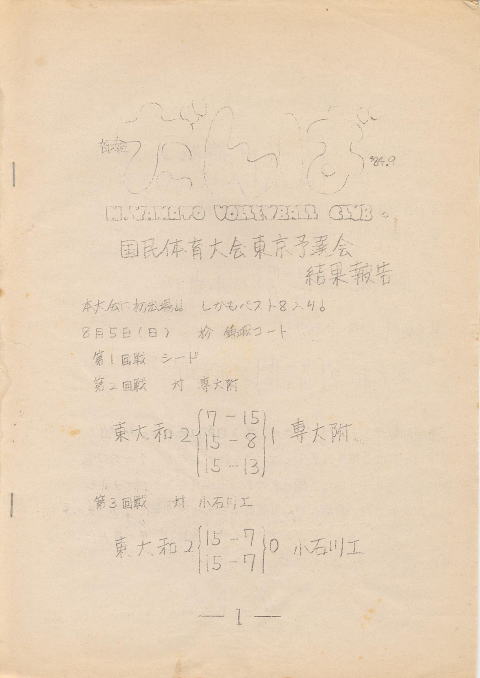 がんば
'84.9
H.YAMATO VOLLEYBALL CLUB
国民体育大会東京予選会
結果報告
本大会に初出場!! しかもベスト8入り!
8月5日(日) 於 コート
第1回戦 シード
第2回戦 対 専大附
東大和 2 1 専大附
7-15
15-8
15-13
第3回戦 対 小石川工
東大和 2 0 小石川工
15-7
15-7
— 1 —